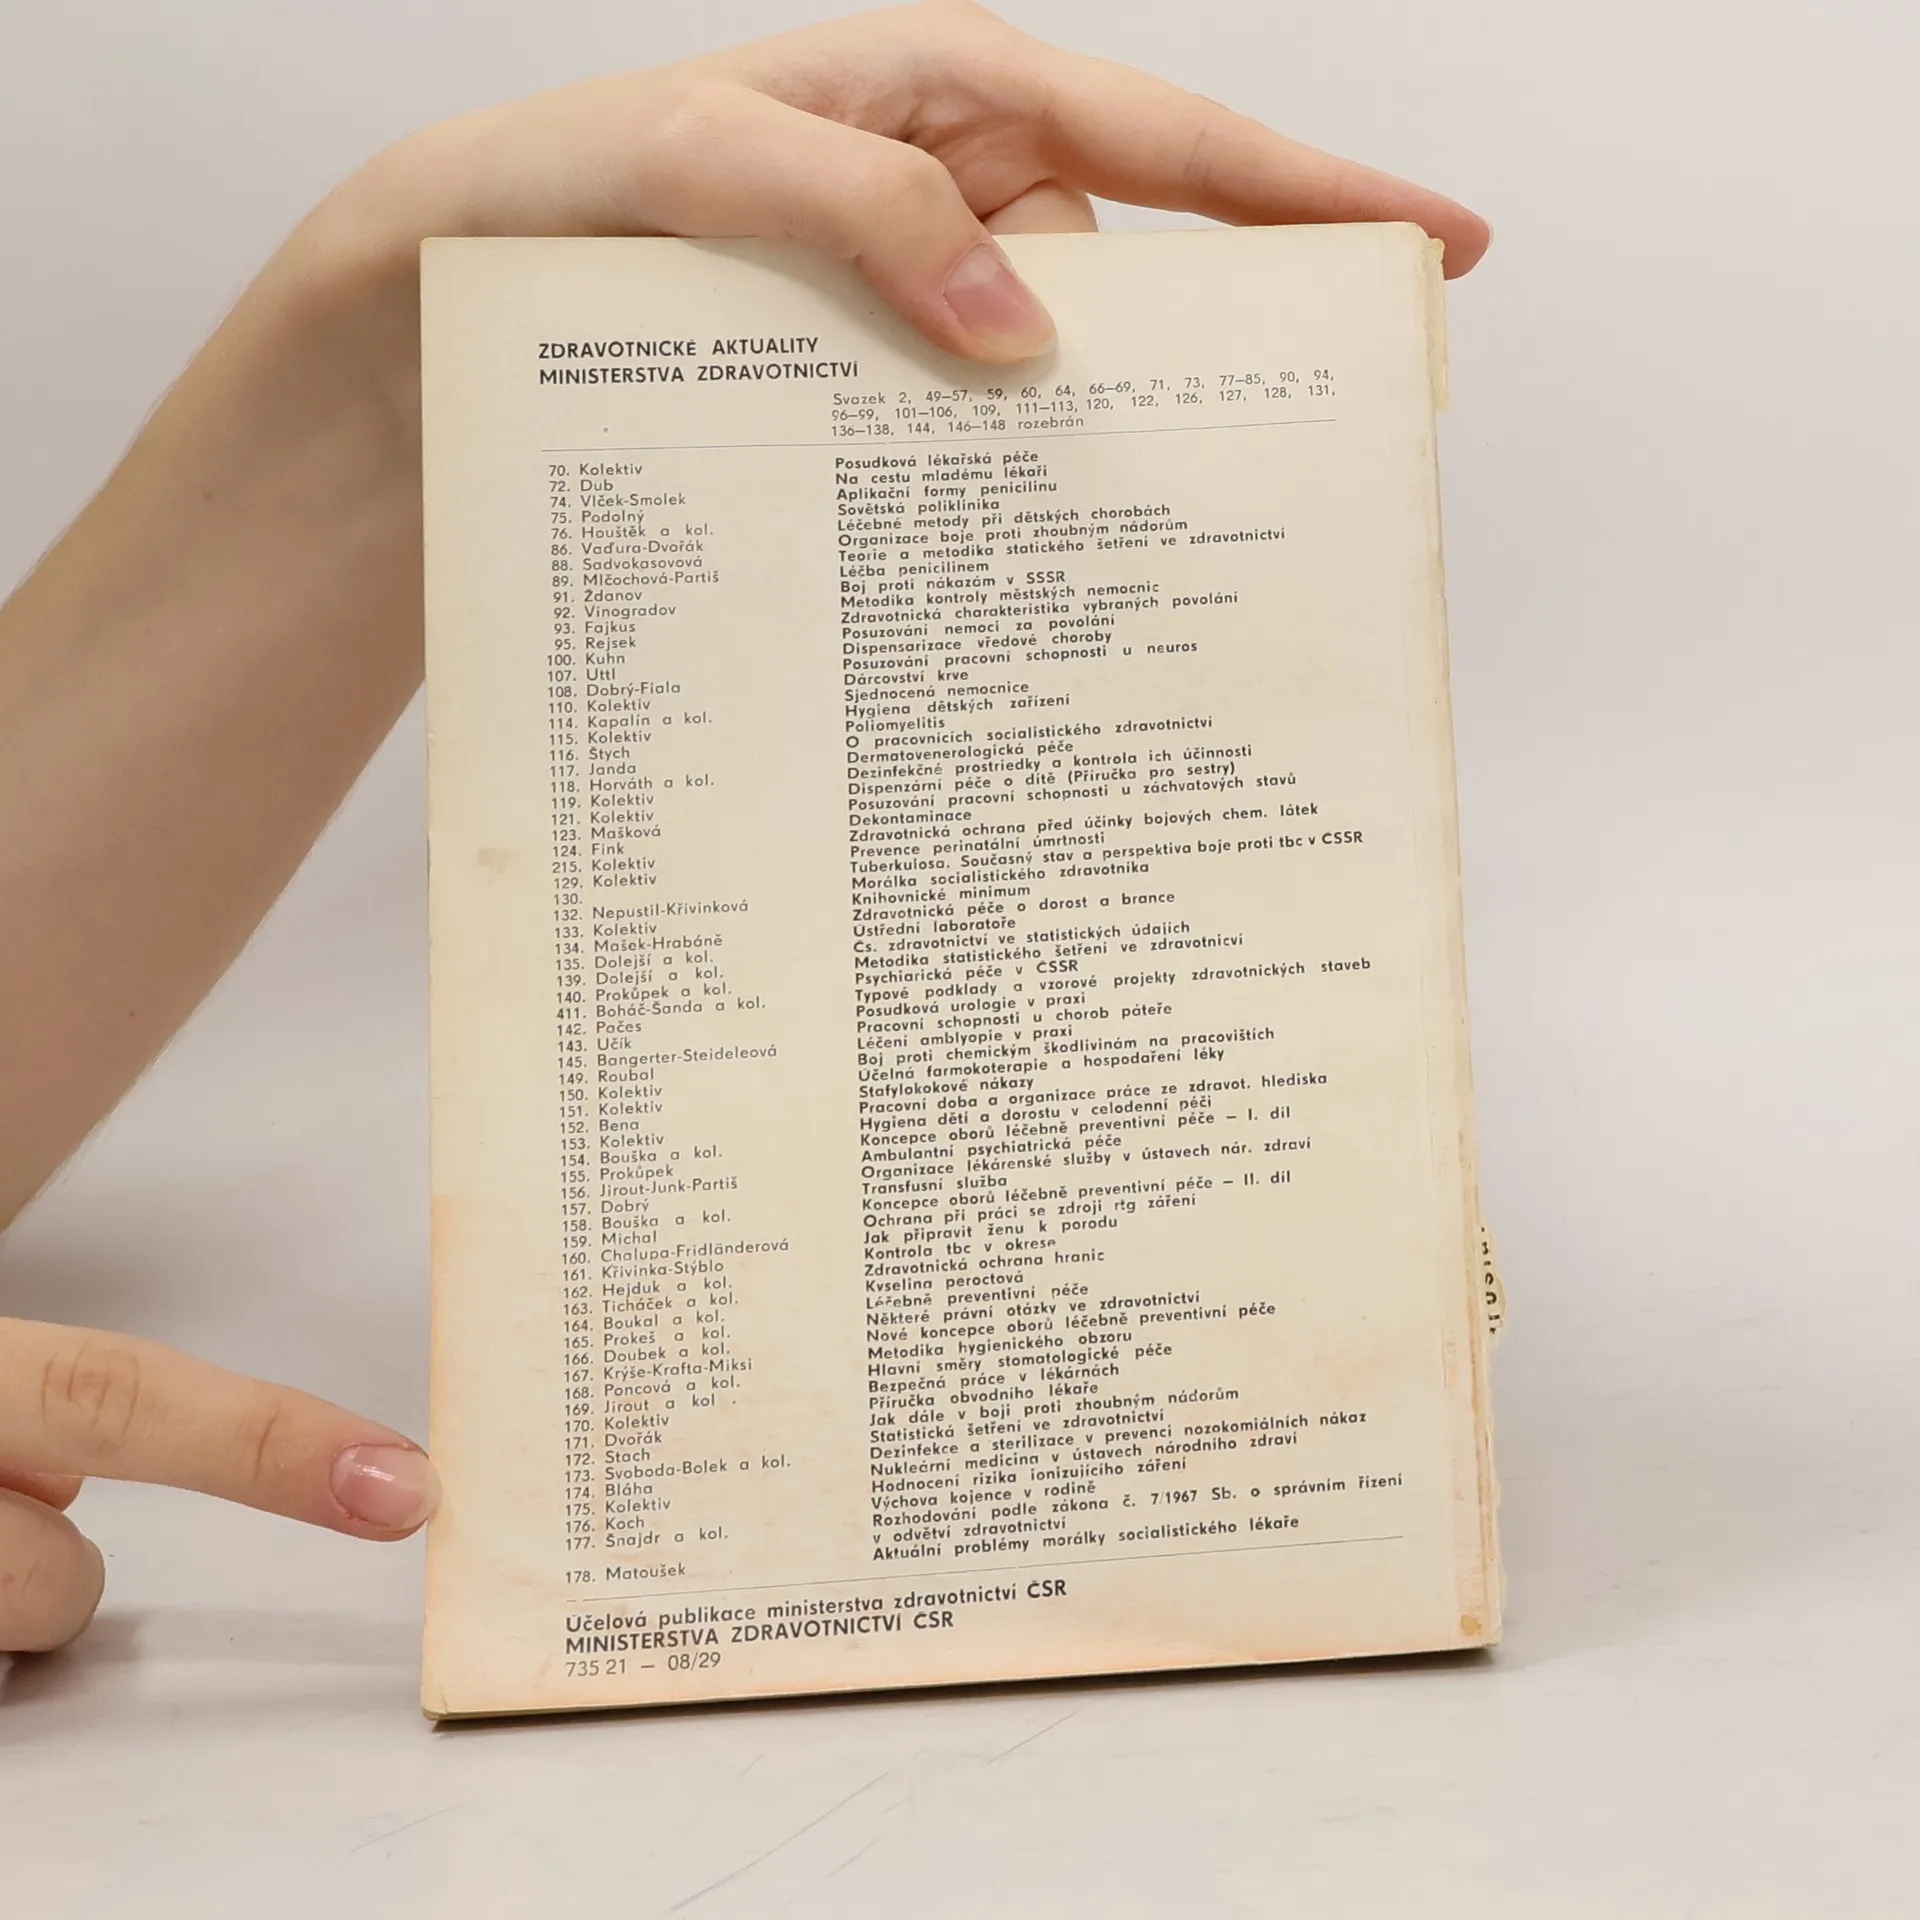 ZDRAVOTNICKÉ AKTUALITY
MINISTERSTVA ZDRAVOTNICTVÍ
Svazek 2, 49–57, 59, 60, 64, 66–69, 71, 73, 77–85, 90, 94,
96–99, 101–106, 109, 111–113, 120, 122, 126, 127, 128, 131,
136–138, 144, 146–148 rozebrán
70. Kolektiv Posudková lékařská péče
72. Dub Na cestu mladému lékaři
74. Vlček-Smolek Aplikační formy penicilinu
75. Podolný Sovětská poliklinika
76. Houštěk a kol. Léčebné metody při dětských chorobách
86. Vaďura-Dvořák Organizace boje proti zhoubným nádorům
88. Sadvokasovová Teorie a metodika statického šetření ve zdravotnictví
89. Mlčochová-Partiš Léčba penicilinem
91. Ždanov Boj proti nákazám v SSSR
92. Vinogradov Metodika kontroly městských nemocnic
93. Fajkus Zdravotnická charakteristika vybraných povolání
95. Rejsek Posuzování nemocí za povolání
100. Kuhn Dispensarizace vředové choroby
107. Uttl Posuzování pracovní schopnosti u neuros
108. Dobrý-Fiala Dárcovství krve
110. Kolektiv Sjednocená nemocnice
114. Kapalín a kol. Hygiena dětských zařízení
115. Kolektiv Poliomyelitis
116. Štych O pracovnících socialistického zdravotnictví
117. Janda Dermatovenerologická péče
118. Horváth a kol. Dezinfekčné prostriedky a kontrola ich účinnosti
119. Kolektiv Dispenzární péče o dítě (Příručka pro sestry)
121. Kolektiv Posuzování pracovní schopnosti u záchvatových stavů
123. Mašková Dekontaminace
124. Fink Zdravotnická ochrana před účinky bojových chem. látek
215. Kolektiv Prevence perinatální úmrtnosti
129. Kolektiv Tuberkulosa. Současný stav a perspektiva boje proti tbc v ČSSR
130. Morálka socialistického zdravotníka
132. Nepustil-Křivinková Knihovnické minimum
133. Kolektiv Zdravotnická péče o dorost a brance
134. Mašek-Hrabáně Ústřední laboratoře
135. Dolejší a kol. Čs. zdravotnictví ve statistických údajích
139. Dolejší a kol. Metodika statistického šetření ve zdravotnicví
140. Prokůpek a kol. Psychiarická péče v ČSSR
411. Boháč-Šanda a kol. Typové podklady a vzorové projekty zdravotnických staveb
142. Pačes Posudková urologie v praxi
143. Učík Pracovní schopnosti u chorob páteře
145. Bangerter-Steideleová Léčení amblyopie v praxi
149. Roubal Boj proti chemickým škodlivinám na pracovištích
150. Kolektiv Účelná farmokoterapie a hospodaření léky
151. Kolektiv Stafylokokové nákazy
152. Bena Pracovní doba a organizace práce ze zdravot. hlediska
153. Kolektiv Hygiena dětí a dorostu v celodenní péči
154. Bouška a kol. Koncepce oborů léčebně preventivní péče – I. díl
155. Prokůpek Ambulantní psychiatrická péče
156. Jirout-Junk-Partiš Organizace lékárenské služby v ústavech nár. zdraví
157. Dobrý Transfusní služba
158. Bouška a kol. Koncepce oborů léčebně preventivní péče – II. díl
159. Michal Ochrana při práci se zdroji rtg záření
160. Chalupa-Fridländerová Jak připravit ženu k porodu
161. Křivinka-Stýblo Kontrola tbc v okrese
162. Hejduk a kol. Zdravotnická ochrana hranic
163. Ticháček a kol. Kyselina peroctová
164. Boukal a kol. Léčebně preventivní péče
165. Prokeš a kol. Některé právní otázky ve zdravotnictví
166. Doubek a kol. Nové koncepce oborů léčebně preventivní péče
167. Krýše-Krafta-Miksi Metodika hygienického obzoru
168. Poncová a kol. Hlavní směry stomatologické péče
169. Jirout a kol . Bezpečná práce v lékárnách
170. Kolektiv Příručka obvodního lékaře
171. Dvořák Jak dále v boji proti zhoubným nádorům
172. Stach Statistická šetření ve zdravotnictví
173. Svoboda-Bolek a kol. Dezinfekce a sterilizace v prevenci nozokomiálních nákaz
174. Bláha Nukleární medicina v ústavech národního zdraví
175. Kolektiv Hodnocení rizika ionizujícího záření
176. Koch Výchova kojence v rodině
177. Šnajdr a kol. Rozhodování podle zákona č. 7/1967 Sb. o správním řízení
v odvětví zdravotnictví
178. Matoušek Aktuální problémy morálky socialistického lékaře
Účelová publikace ministerstva zdravotnictví ČSR
MINISTERSTVA ZDRAVOTNICTVÍ ČSR
735 21 – 08/29